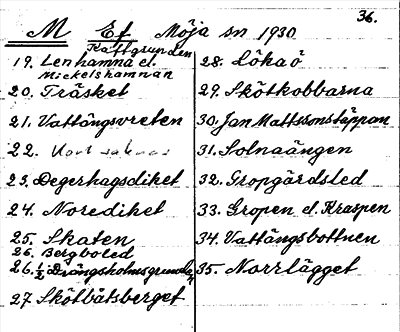 36.
M Ef Möja sn 1930
Kattgrunden
19. Lenhamna el.
Mickelshamnan
20. Träsket
21. Vattängsvreten
22. Kort saknas
23. Degerhagsdiket
24. Norediket
25. Skaten
26. Bergboled
26 1/2 Drängsholmsgrunden
27 Skötbåtsberget
28. Lökaö
29. Skötkobbarna
30. Jan Mattssonstäppan
31. Solnaängen
32. Gropgärdsled
33. Gropen el. Kraspen
34. Vattängsbottnen
35. Norrlägget